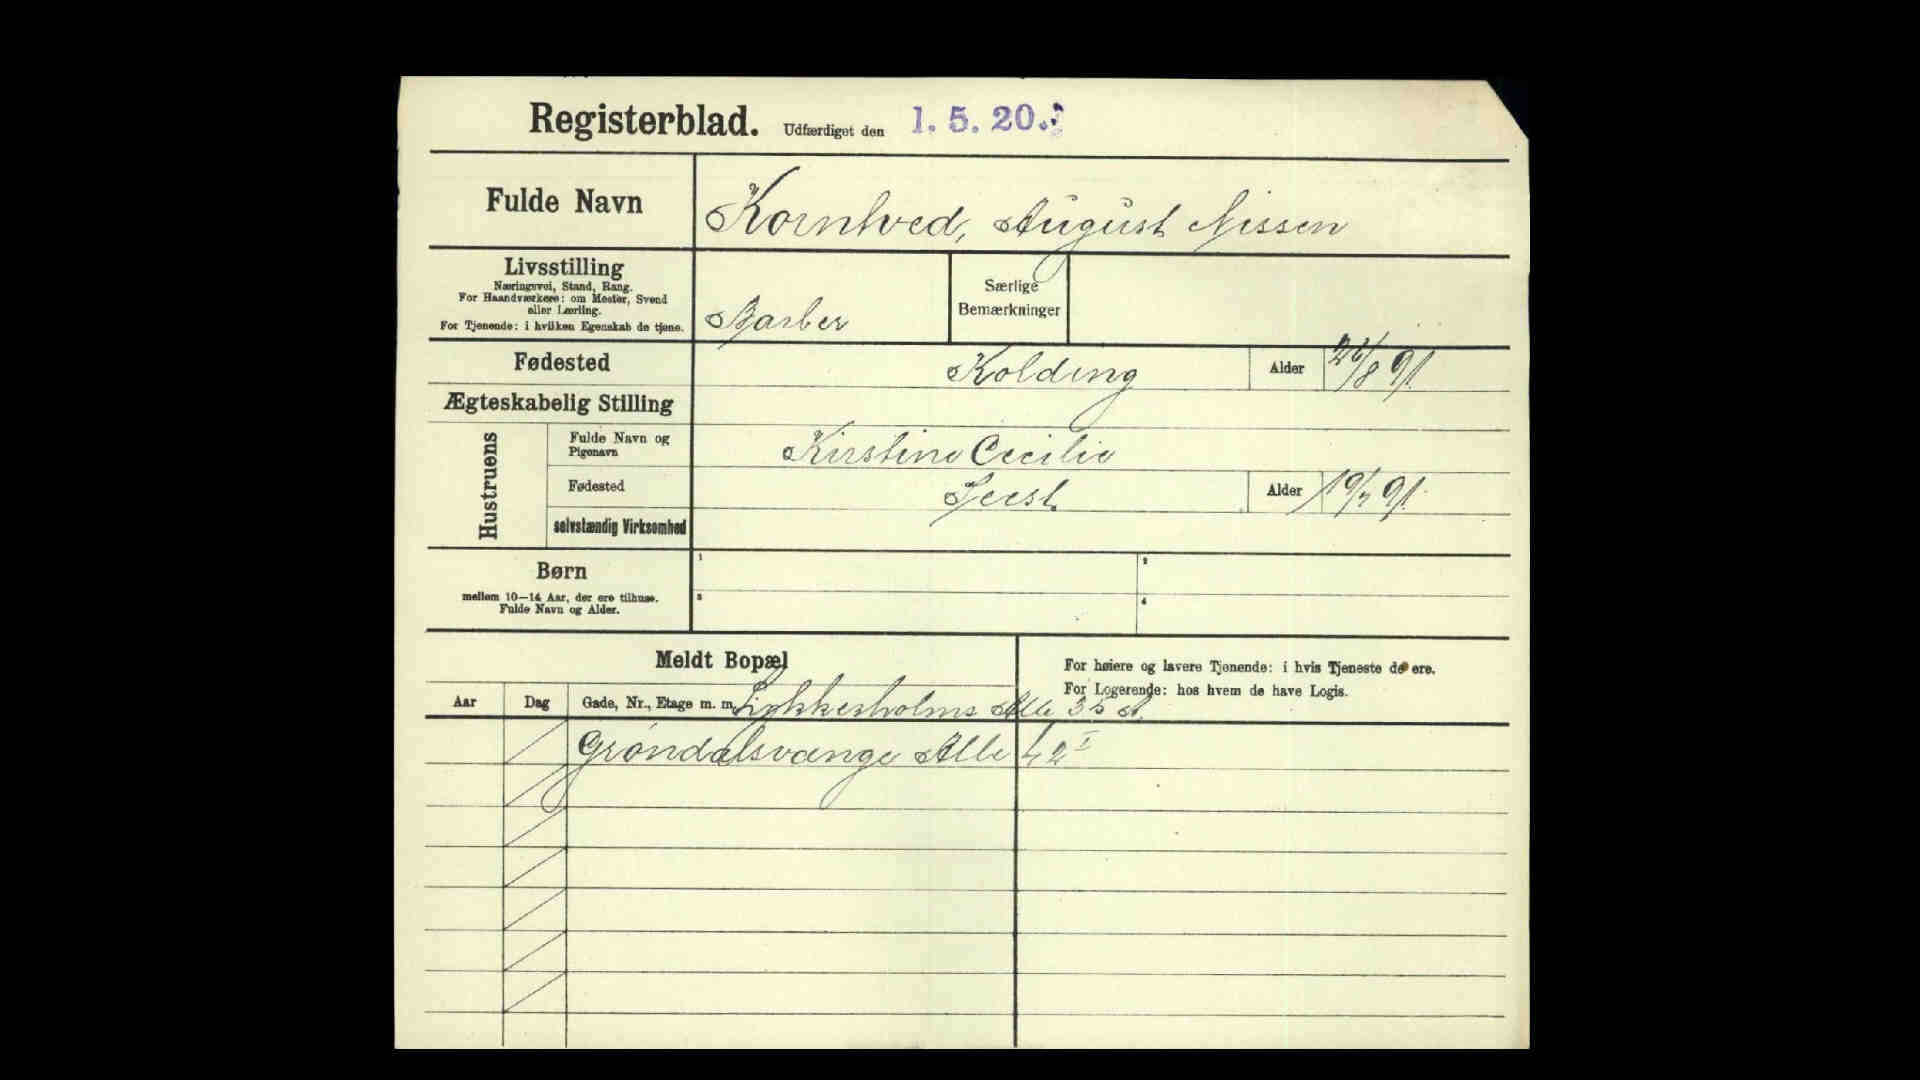 Registerblad. Udfærdiget den 1. 5. 20.
Fulde Navn Kornhved, August Nissen
Livsstilling
Næringsvei, Stand, Rang.
For Haandværkere: om Mester, Svend
eller Lærling.
For Tjenende: i hvilken Egenskab de tjene.
Barber
Særlige
Bemærkninger
Fødested Kolding Alder /8 91
Ægteskabelig Stilling
Hustruens
Fulde Navn og
Pigenavn
Kirstine Cecilie
Fødested Seest Alder 19/7 91
selvstændig Virksomhed
Børn
mellem 10—14 Aar, der ere tilhuse.
Fulde Navn og Alder.
1 2
3 4
Meldt Bopæl
For høiere og lavere Tjenende: i hvis Tjeneste de ere.
For Logerende: hos hvem de have Logis.
Aar Dag Gade, Nr., Etage m. m. Lykkesholms Alle 3
Grøndalsvænge Alle 42 I